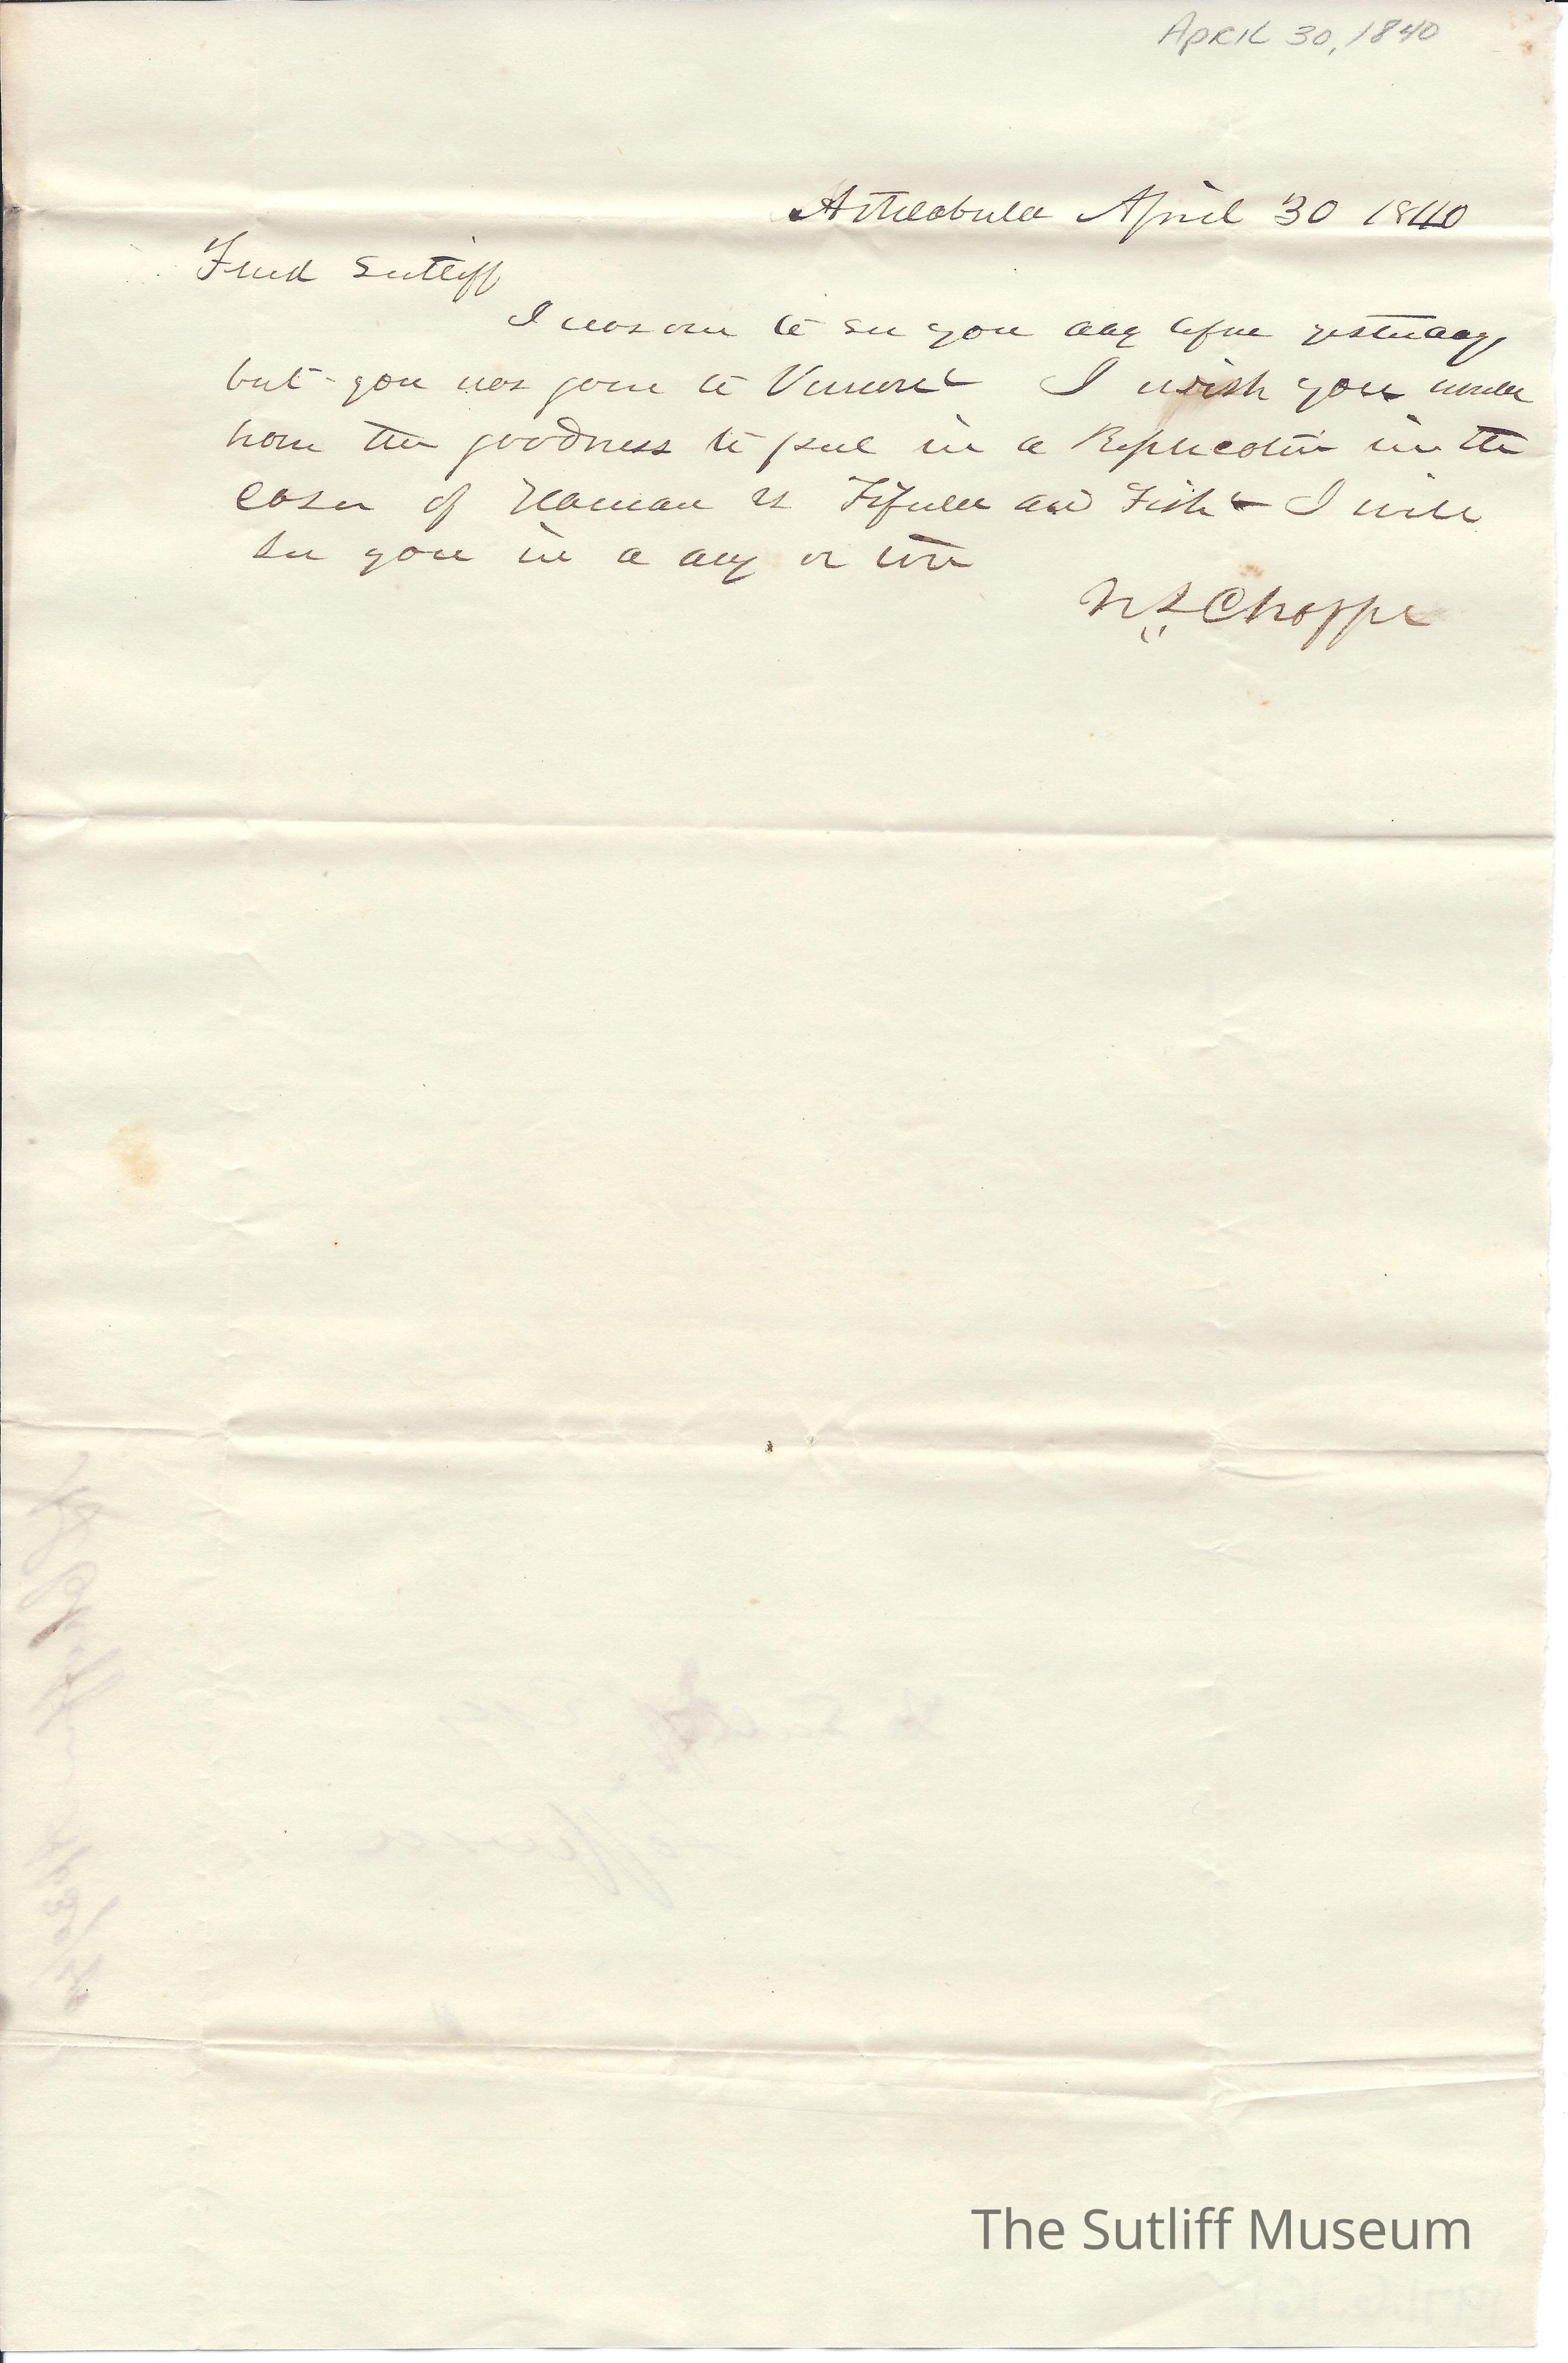 APRIL 30, 1840
Ashtabula April 30 1840
Friend Sutliff
I was over to see you day before yesterday
but you was gone to Vernon I wish you would
have the goodness to put in a Replication in the
case of Haman vs and Fish I will
see you in a day or two
N L Chaffee
The Sutliff Museum